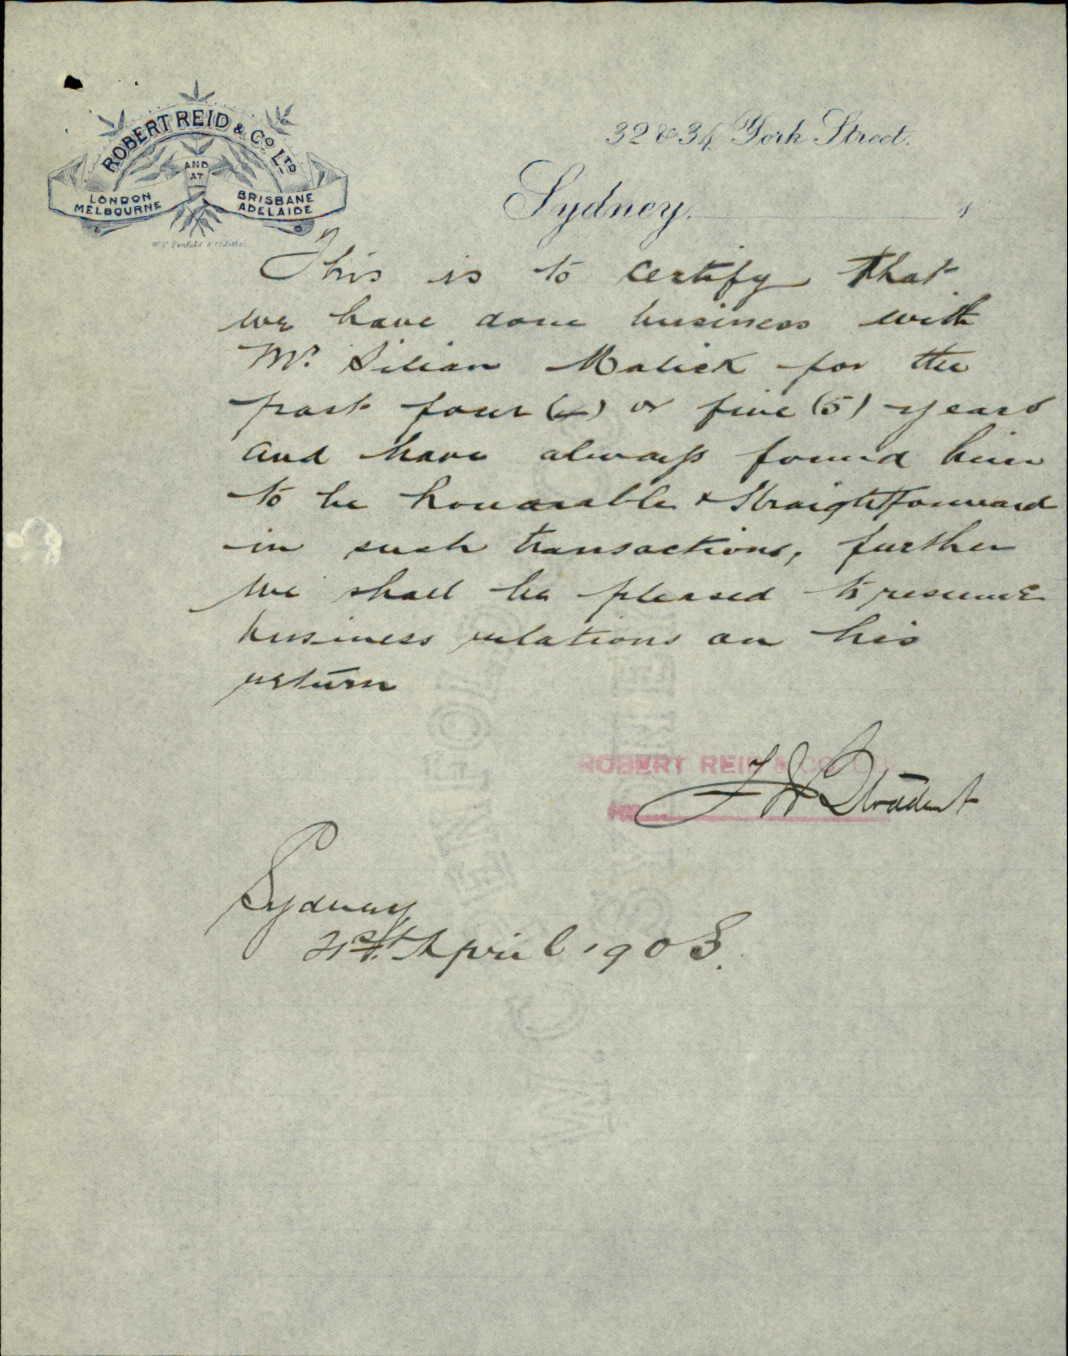 ROBERT REID & Co. LTD
AND
AT
LONDON
MELBOURNE
BRISBANE
ADELAIDE
32 & 34 York Street.
Sydney, 1
This is to certify that
we have done business with
Mr. Silian Malick for the
past four (4) or five (5) years
and have always found him
to be honorable & Straightforward
in such transactions, further
we shall be pleased to resume
business relations on his
return
ROBERT REID & CO
Sydney
21st April 1903.